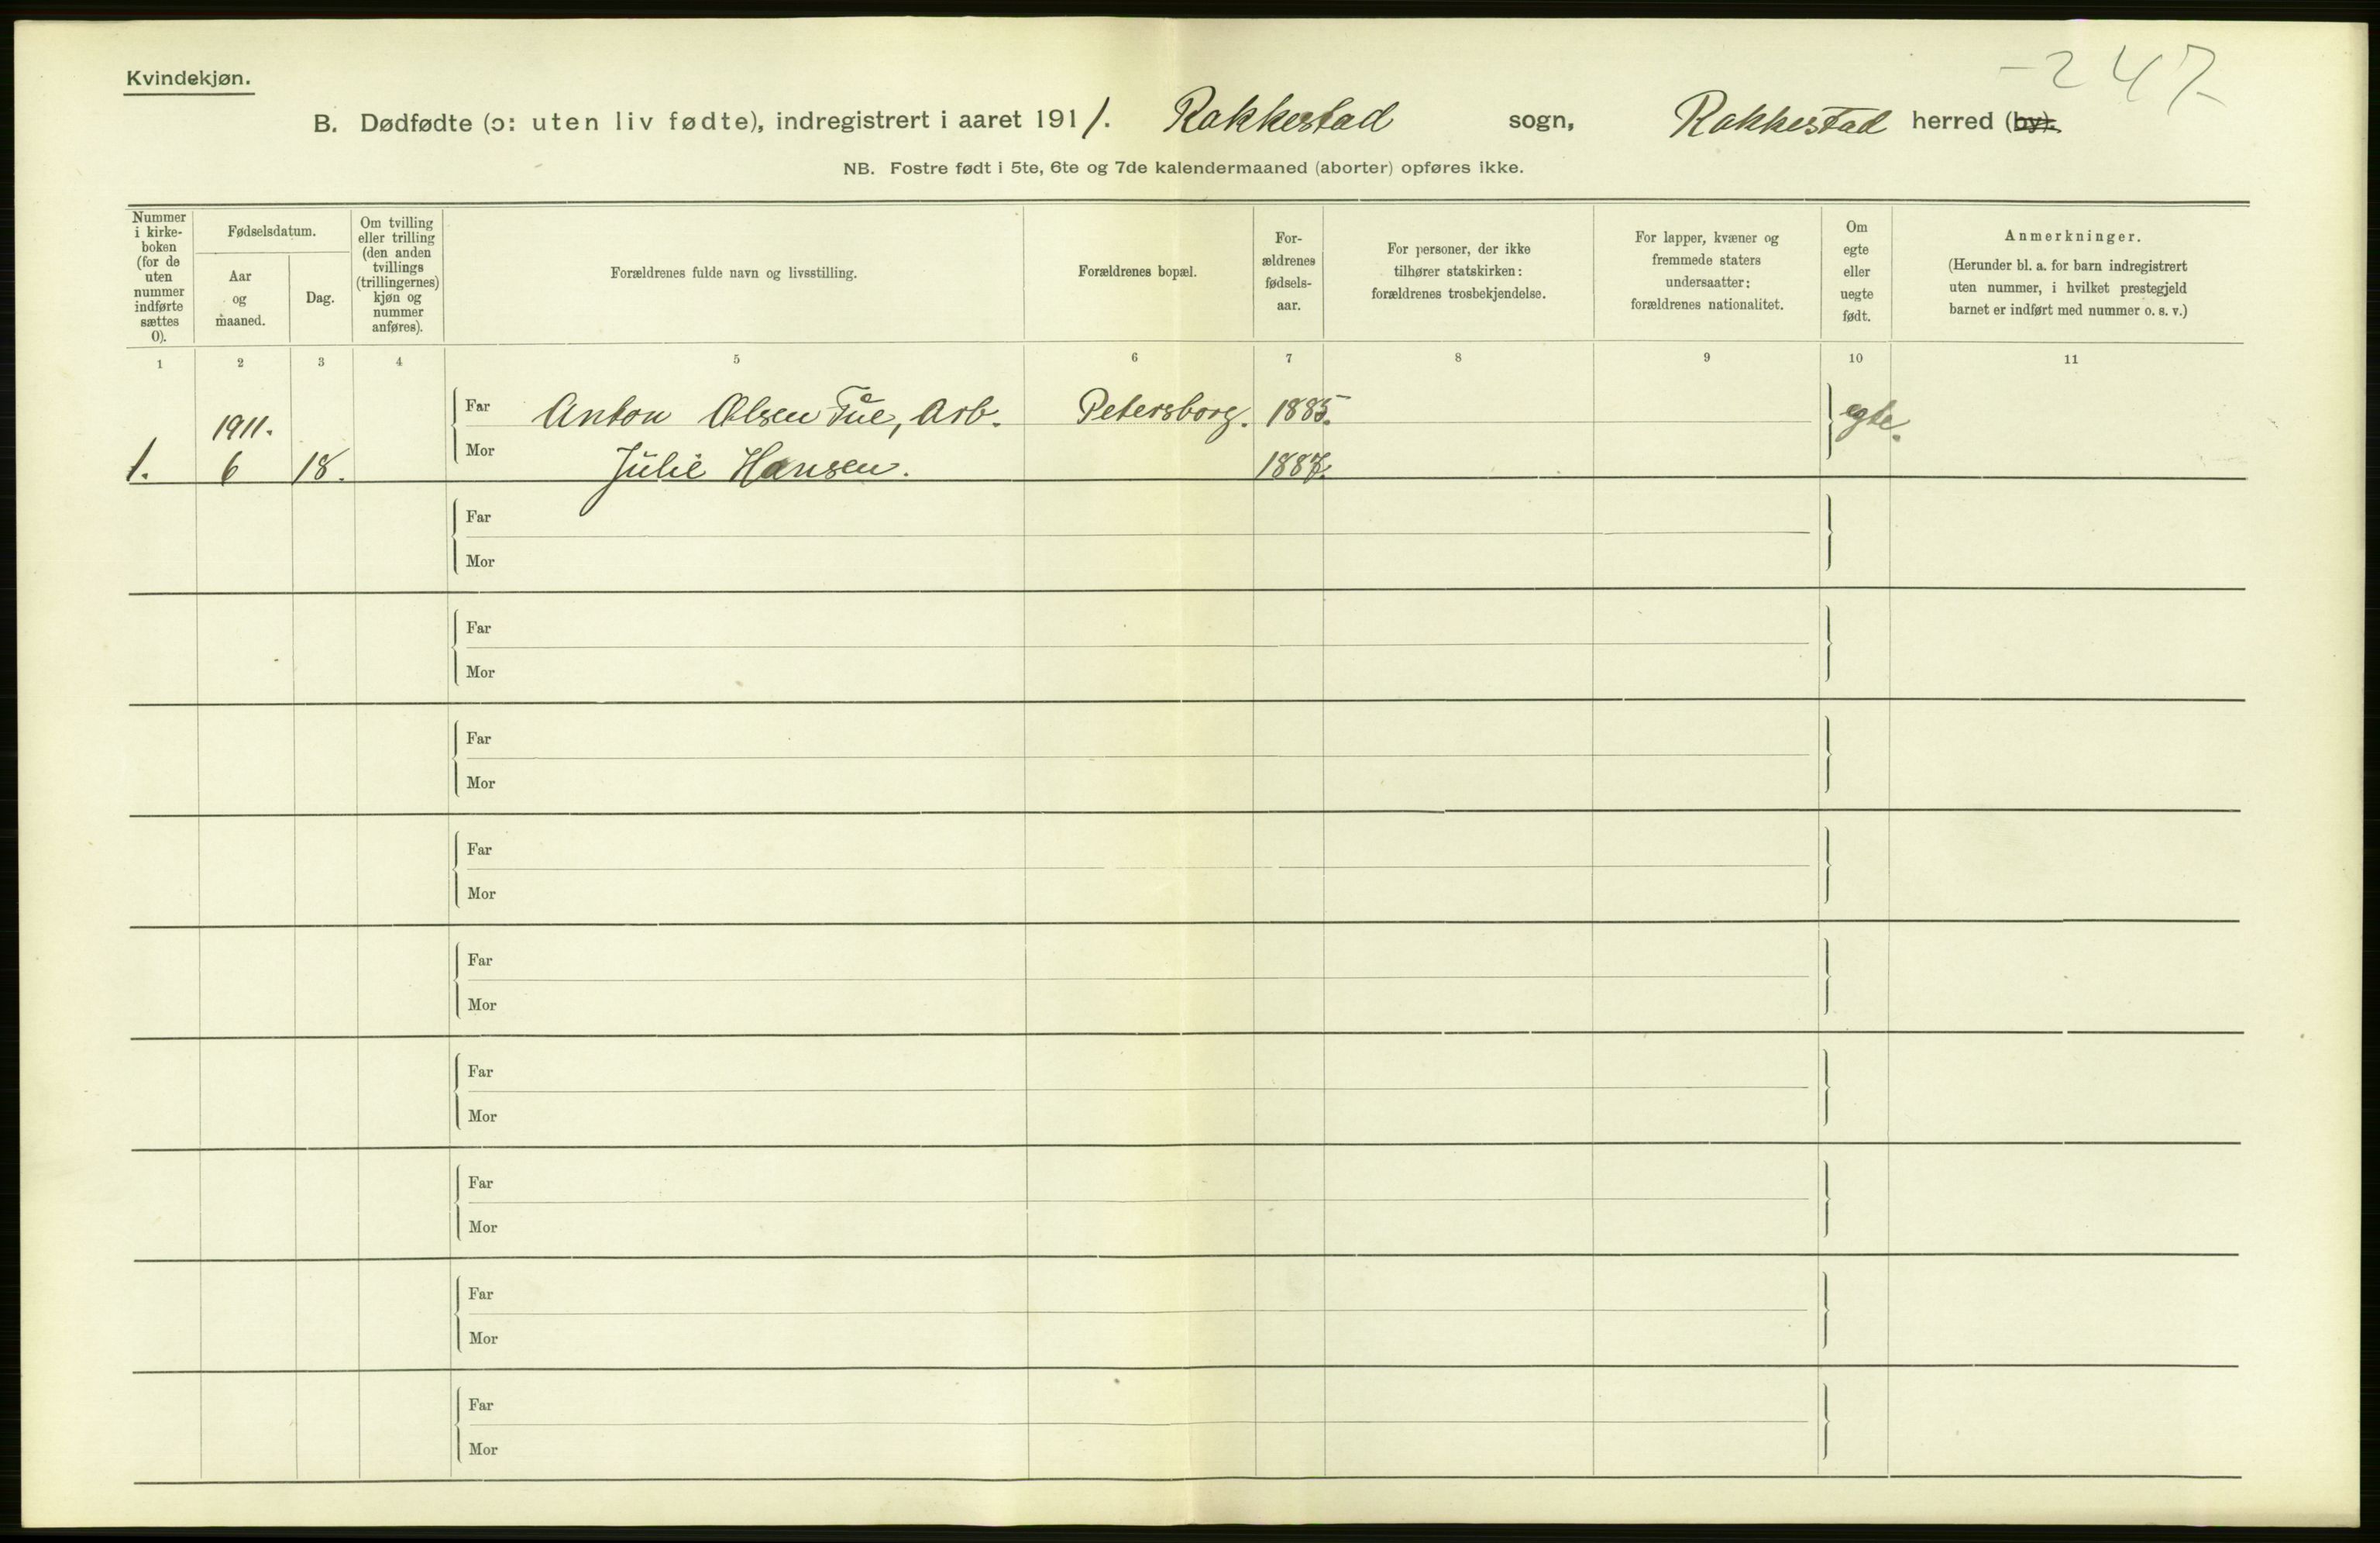 -247-
Kvindekjøn.
B. Dødfødte (ɔ: uten liv fødte), indregistrert i aaret 1911. Rakkestad sogn, Rakkestad herred (by).
NB. Fostre født i 5te, 6te og 7de kalendermaaned (aborter) opføres ikke.
Nummer
i kirke-
boken
(for de
uten
nummer
indførte
sættes
0).
Fødselsdatum.
Aar
og
maaned.
Dag.
Om tvilling
eller trilling
(den anden
tvillings
(trillingernes)
kjøn og
nummer
anføres).
Forældrenes fulde navn og livsstilling.
Forældrenes bopæl.
For-
ældrenes
fødsels-
aar.
For personer, der ikke
tilhører statskirken:
forældrenes trosbekjendelse.
For lapper, kvæner og
fremmede staters
undersaatter:
forældrenes nationalitet.
Om
egte
eller
uegte
født.
Anmerkninger.
(Herunder bl. a. for barn indregistrert
uten nummer, i hvilket prestegjeld
barnet er indført med nummer o. s. v.)
1 2 3 4 5 6 7 8 9 10 11
1911. Far Anton Olsen, Arb. Petersborg. 1885. egte.
1. 6 18. Mor Julie Hansen. 1887.
Far
Mor
Far
Mor
Far
Mor
Far
Mor
Far
Mor
Far
Mor
Far
Mor
Far
Mor
Far
Mor